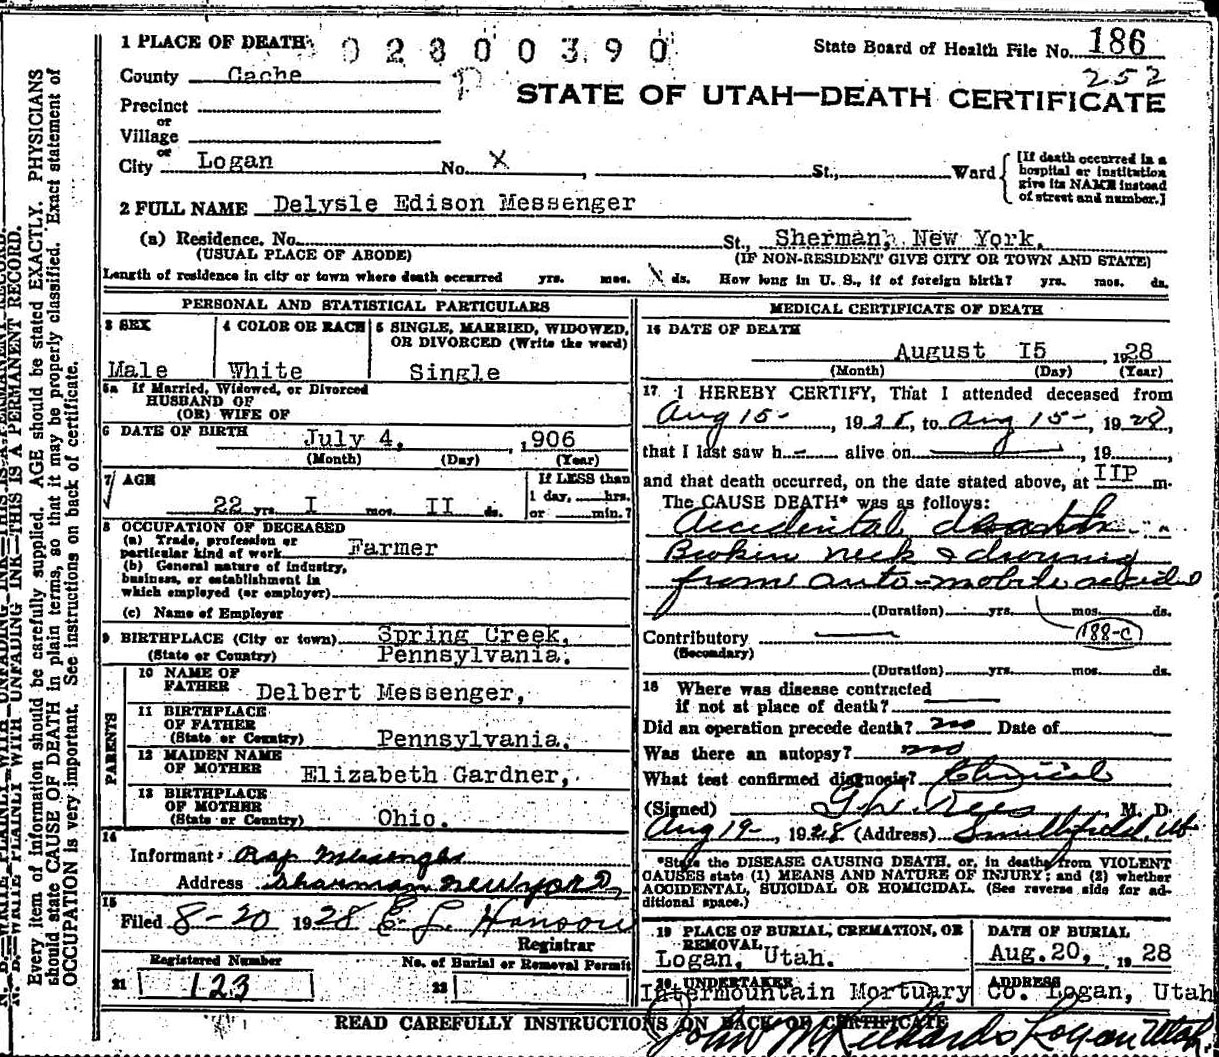 1 PLACE OF DEATH 02300390 State Board of Health File No. 186
County Cache 252
STATE OF UTAH—DEATH CERTIFICATE
Precinct
or
Village
or
City Logan No. X St., Ward [If death occurred in a hospital or institution give its NAME instead of street and number.]
2 FULL NAME Delysle Edison Messenger
(a) Residence. No. St., Sherman, New York.
(USUAL PLACE OF ABODE) (IF NON-RESIDENT GIVE CITY OR TOWN AND STATE)
Length of residence in city or town where death occurred yrs. mos. ds. How long in U. S., if of foreign birth? yrs. mos. ds.
PERSONAL AND STATISTICAL PARTICULARS
3 SEX 4 COLOR OR RACE 5 SINGLE, MARRIED, WIDOWED,
OR DIVORCED (Write the word)
Male White Single
5a If Married, Widowed, or Divorced
HUSBAND OF
(OR) WIFE OF
6 DATE OF BIRTH July 4, ,906
(Month) (Day) (Year)
7 AGE If LESS than
1 day, hrs.
22 yrs. I mos. II ds. or min.?
8 OCCUPATION OF DECEASED
(a) Trade, profession or
particular kind of work Farmer
(b) General nature of industry,
business, or establishment in
which employed (or employer)
(c) Name of Employer
9 BIRTHPLACE (City or town) Spring Creek,
(State or Country) Pennsylvania.
PARENTS
10 NAME OF
FATHER Delbert Messenger,
11 BIRTHPLACE
OF FATHER
(State or Country) Pennsylvania.
12 MAIDEN NAME
OF MOTHER Elizabeth Gardner,
13 BIRTHPLACE
OF MOTHER
(State or Country) Ohio.
14
Informant: Ray Messenger
Address Sharman New York
15
Filed 8-20 1928 E. L. Hanson
Registrar
Registered Number No. of Burial or Removal Permit
21 123 22
MEDICAL CERTIFICATE OF DEATH
16 DATE OF DEATH
August I5 , 1928
(Month) (Day) (Year)
17 I HEREBY CERTIFY, That I attended deceased from
Aug 15-, 1928, to Aug 15-, 1928,
that I last saw h alive on , 19
and that death occurred, on the date stated above, at IIP m.
The CAUSE DEATH* was as follows:
Accidental death
Broken neck & drowning
from auto-mobile accident
(Duration) yrs. mos. ds.
Contributory 188-c
(Secondary)
(Duration) yrs. mos. ds.
18 Where was disease contracted
if not at place of death?
Did an operation precede death? no Date of
Was there an autopsy? no
What test confirmed diagnosis? Clinical
(Signed) Rees M. D.
Aug 19-, 1928 (Address) Smithfield, Ut
*State the DISEASE CAUSING DEATH, or, in deaths from VIOLENT
CAUSES state (1) MEANS AND NATURE OF INJURY; and (2) whether
ACCIDENTAL, SUICIDAL OR HOMICIDAL. (See reverse side for ad-
ditional space.)
19 PLACE OF BURIAL, CREMATION, OR REMOVAL DATE OF BURIAL
Logan, Utah. Aug.20, , 1928
20 UNDERTAKER ADDRESS
Intermountain Mortuary Co. Logan, Utah
READ CAREFULLY INSTRUCTIONS ON BACK OF CERTIFICATE
John M Richards Logan Utah.
Every item of information should be carefully supplied. AGE should be stated EXACTLY. PHYSICIANS
should state CAUSE OF DEATH in plain terms, so that it may be properly classified. Exact statement of
OCCUPATION is very important. See instructions on back of certificate.
N. B.—WRITE PLAINLY WITH UNFADING INK—THIS IS A PERMANENT RECORD.